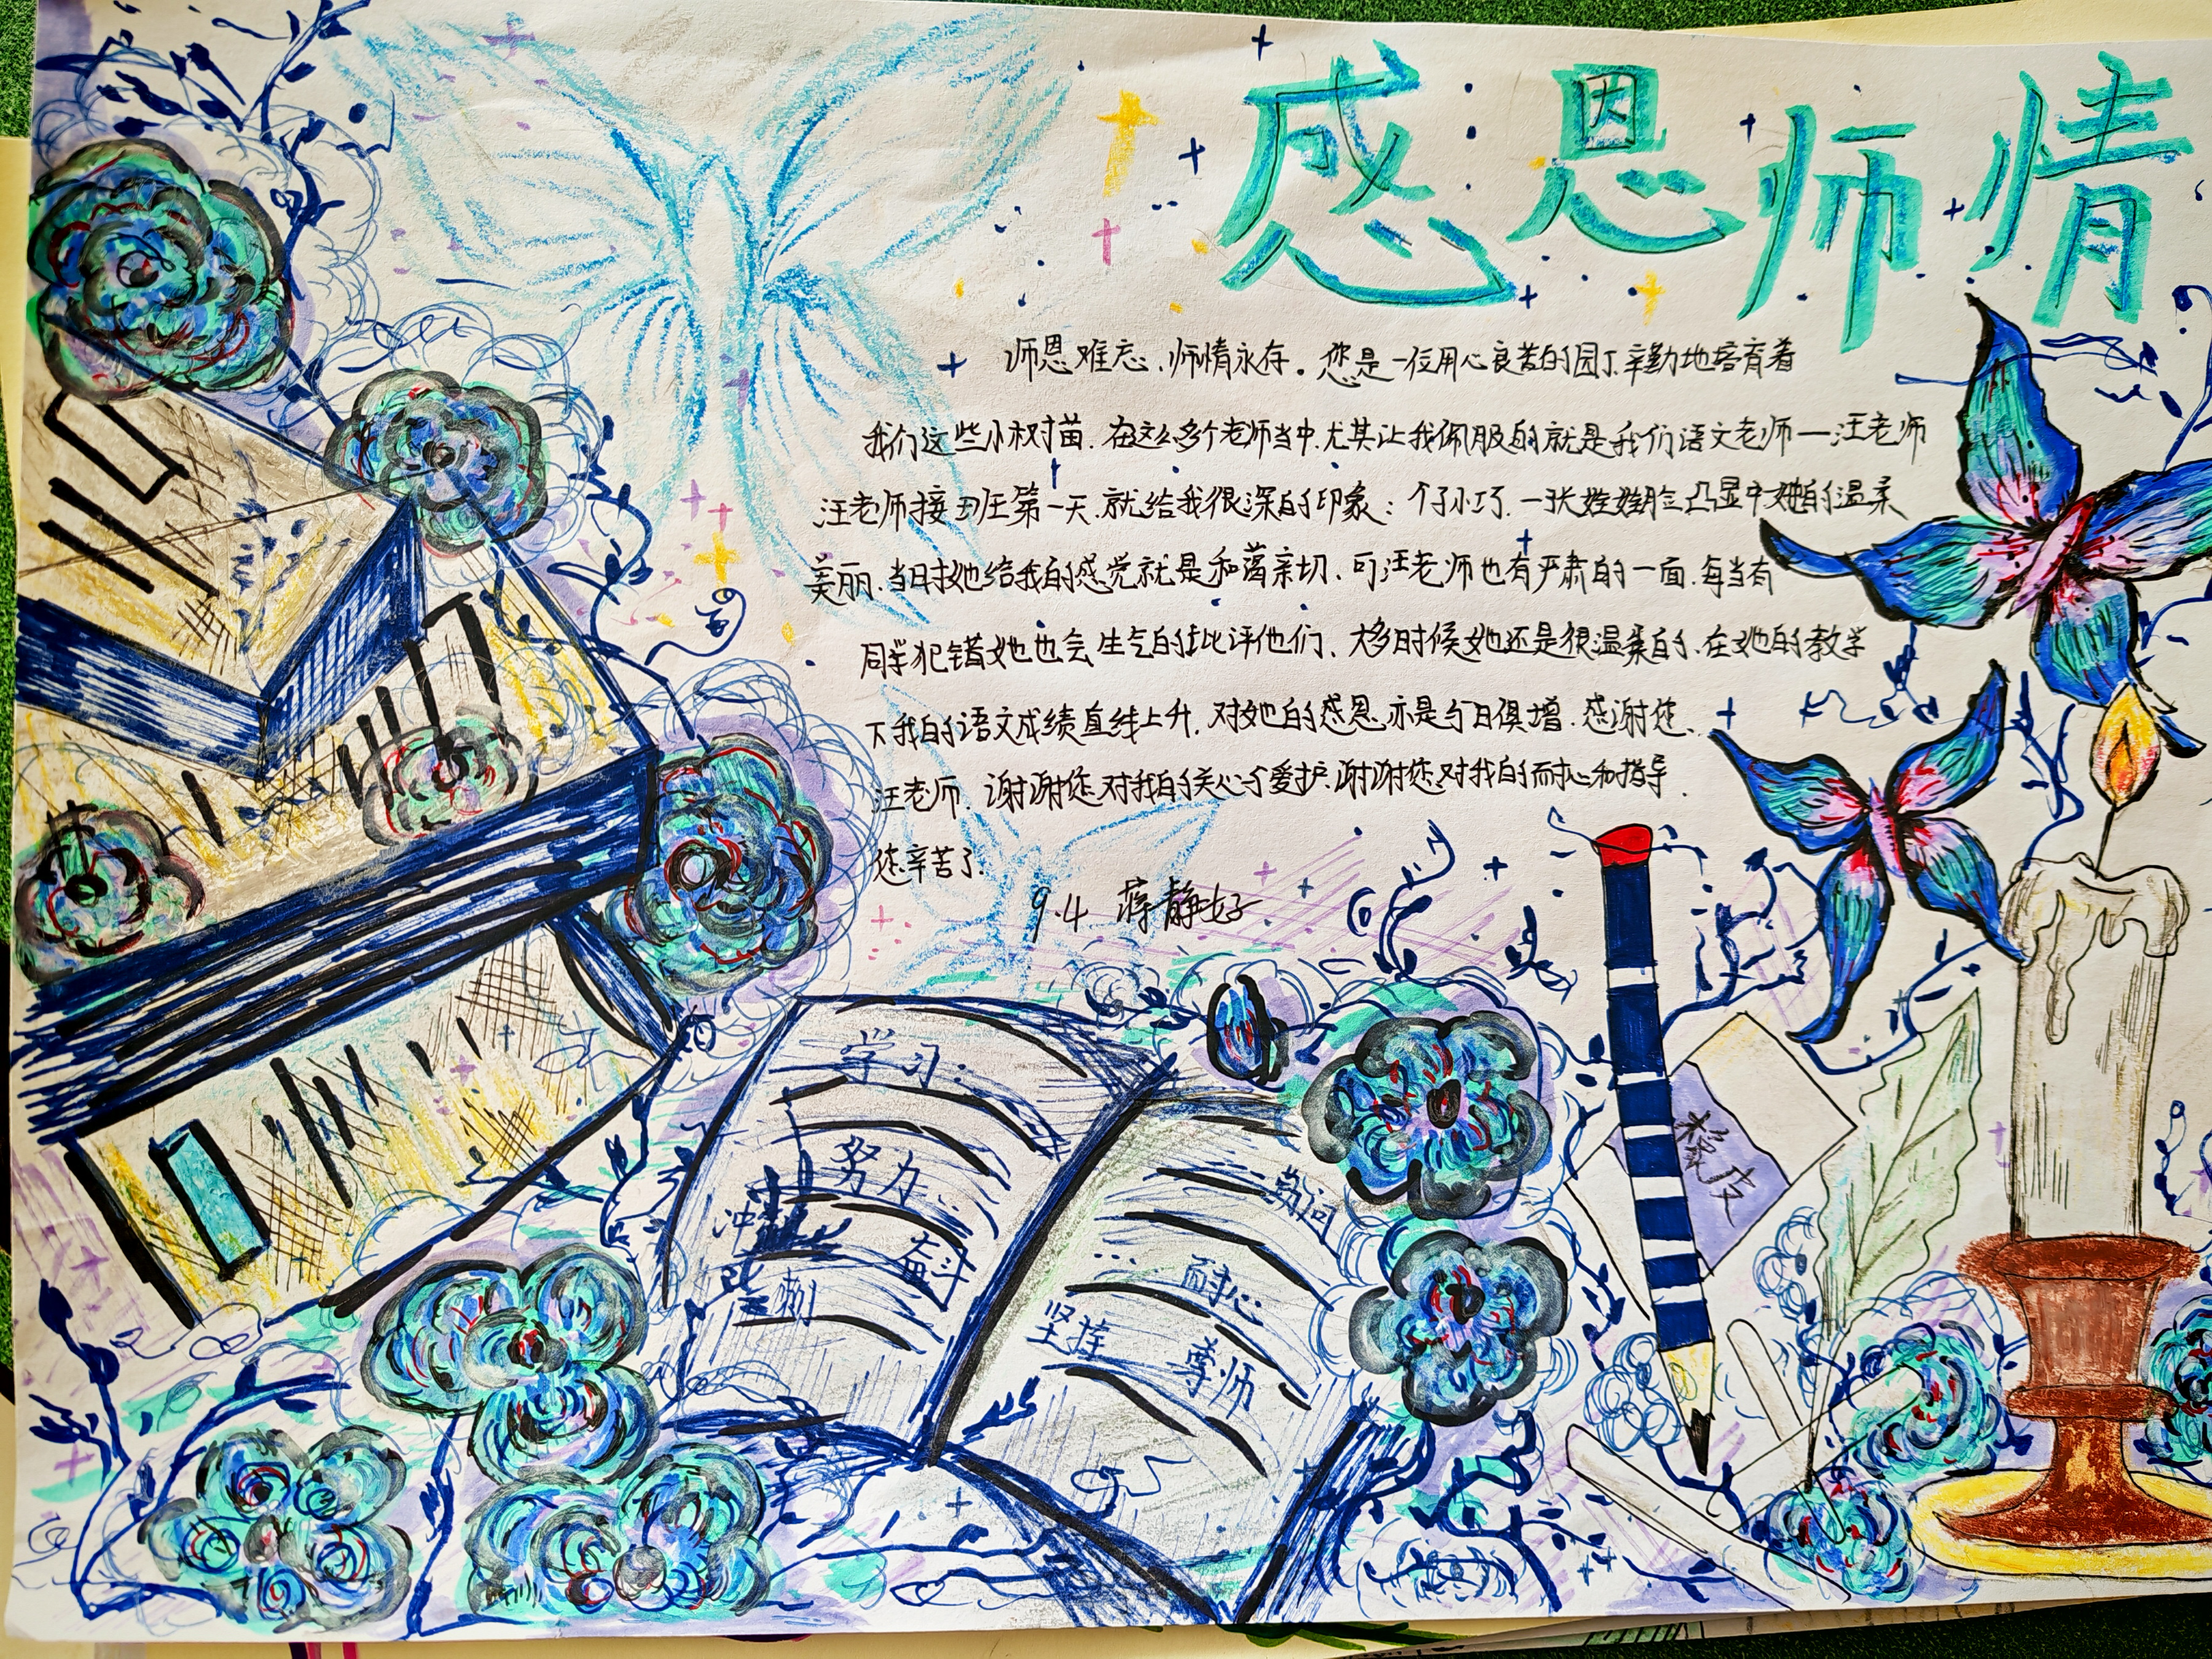 感恩师情
师恩难忘,师情永存。您是一位用心良苦的园丁辛勤地培育着
我们这些小树苗.在这么多个老师当中.尤其让我佩服的就是我们语文老师—汪老师
汪老师接班第一天.就给我很深的印象:个子小巧.一张娃娃脸凸显中她的温柔
美丽.当时她给我的感觉就是和蔼亲切.可汪老师也有严肃的一面.每当有
同学犯错她也会生气的批评他们.大多时候她还是很温柔的.在她的教学
下我的语文成绩直线上升.对她的感恩亦是与日俱增.感谢您.
汪老师.谢谢您对我的关心个爱护.谢谢您对我的耐心和指导.
您辛苦了.
9.4 蒋静好
学习
努力
冲
奋斗
勤问
耐心
坚持
尊师
橡皮